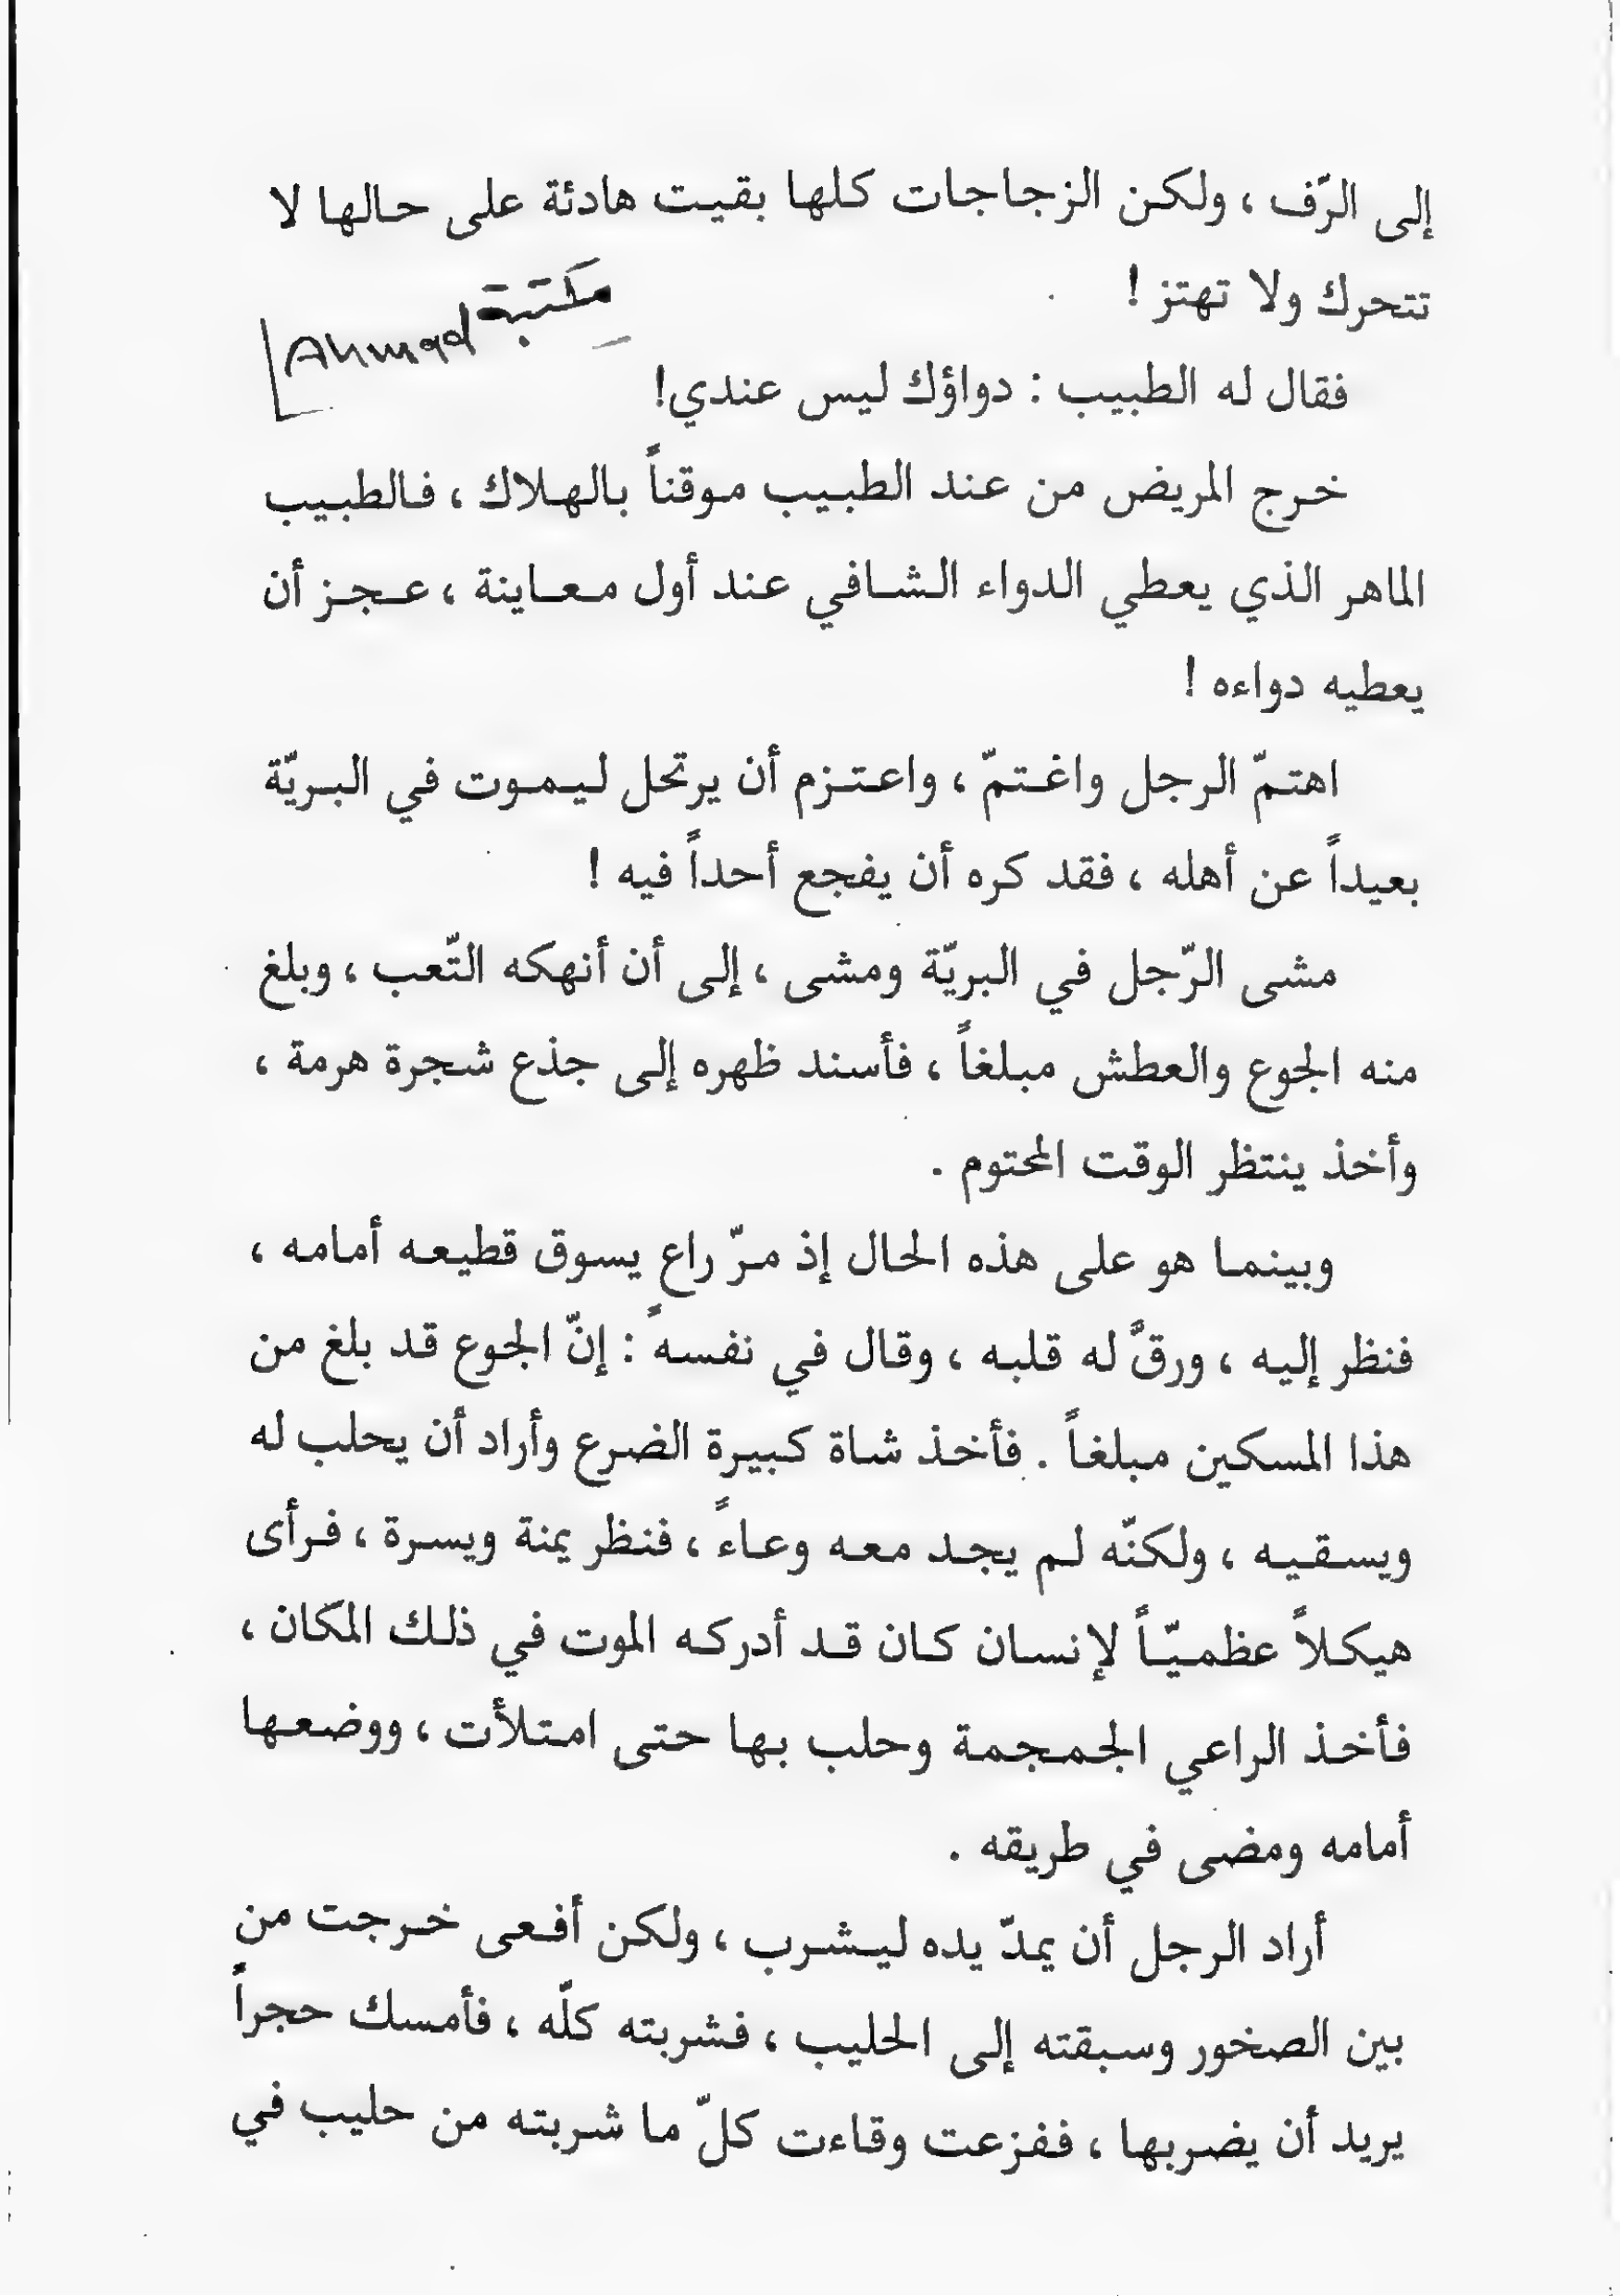 إلى الرّف ، ولكن الزجاجات كلها بقيت هادئة على حالها لا
تتحرك ولا تهتز !
مكتبة Ahmad
فقال له الطبيب : دواؤك ليس عندي!
خرج المريض من عند الطبيب موقناً بالهلاك ، فالطبيب
الماهر الذي يعطي الدواء الشافي عند أول معاينة ، عجز أن
يعطيه دواءه !
اهتمّ الرجل واغتمّ ، واعتزم أن يرتحل ليموت في البريّة
بعيداً عن أهله ، فقد كره أن يفجع أحداً فيه !
مشى الرّجل في البريّة ومشى ، إلى أن أنهكه التّعب ، وبلغ
منه الجوع والعطش مبلغاً ، فأسند ظهره إلى جذع شجرة هرمة ،
وأخذ ينتظر الوقت المحتوم .
وبينما هو على هذه الحال إذ مرّ راع يسوق قطيعه أمامه ،
فنظر إليه ، ورقّ له قلبه ، وقال في نفسه : إنّ الجوع قد بلغ من
هذا المسكين مبلغاً . فأخذ شاة كبيرة الضرع وأراد أن يحلب له
ويسقيه ، ولكنّه لم يجد معه وعاءً ، فنظر يمنة ويسرة ، فرأى
هيكلاً عظميّاً لإنسان كان قد أدركه الموت في ذلك المكان ،
فأخذ الراعي الجمجمة وحلب بها حتى امتلأت ، ووضعها
أمامه ومضى في طريقه .
أراد الرجل أن يمدّ يده ليشرب ، ولكن أفعى خرجت من
بين الصخور وسبقته إلى الحليب ، فشربته كلّه ، فأمسك حجراً
يريد أن يضربها ، ففزعت وقاءت كلّ ما شربته من حليب في